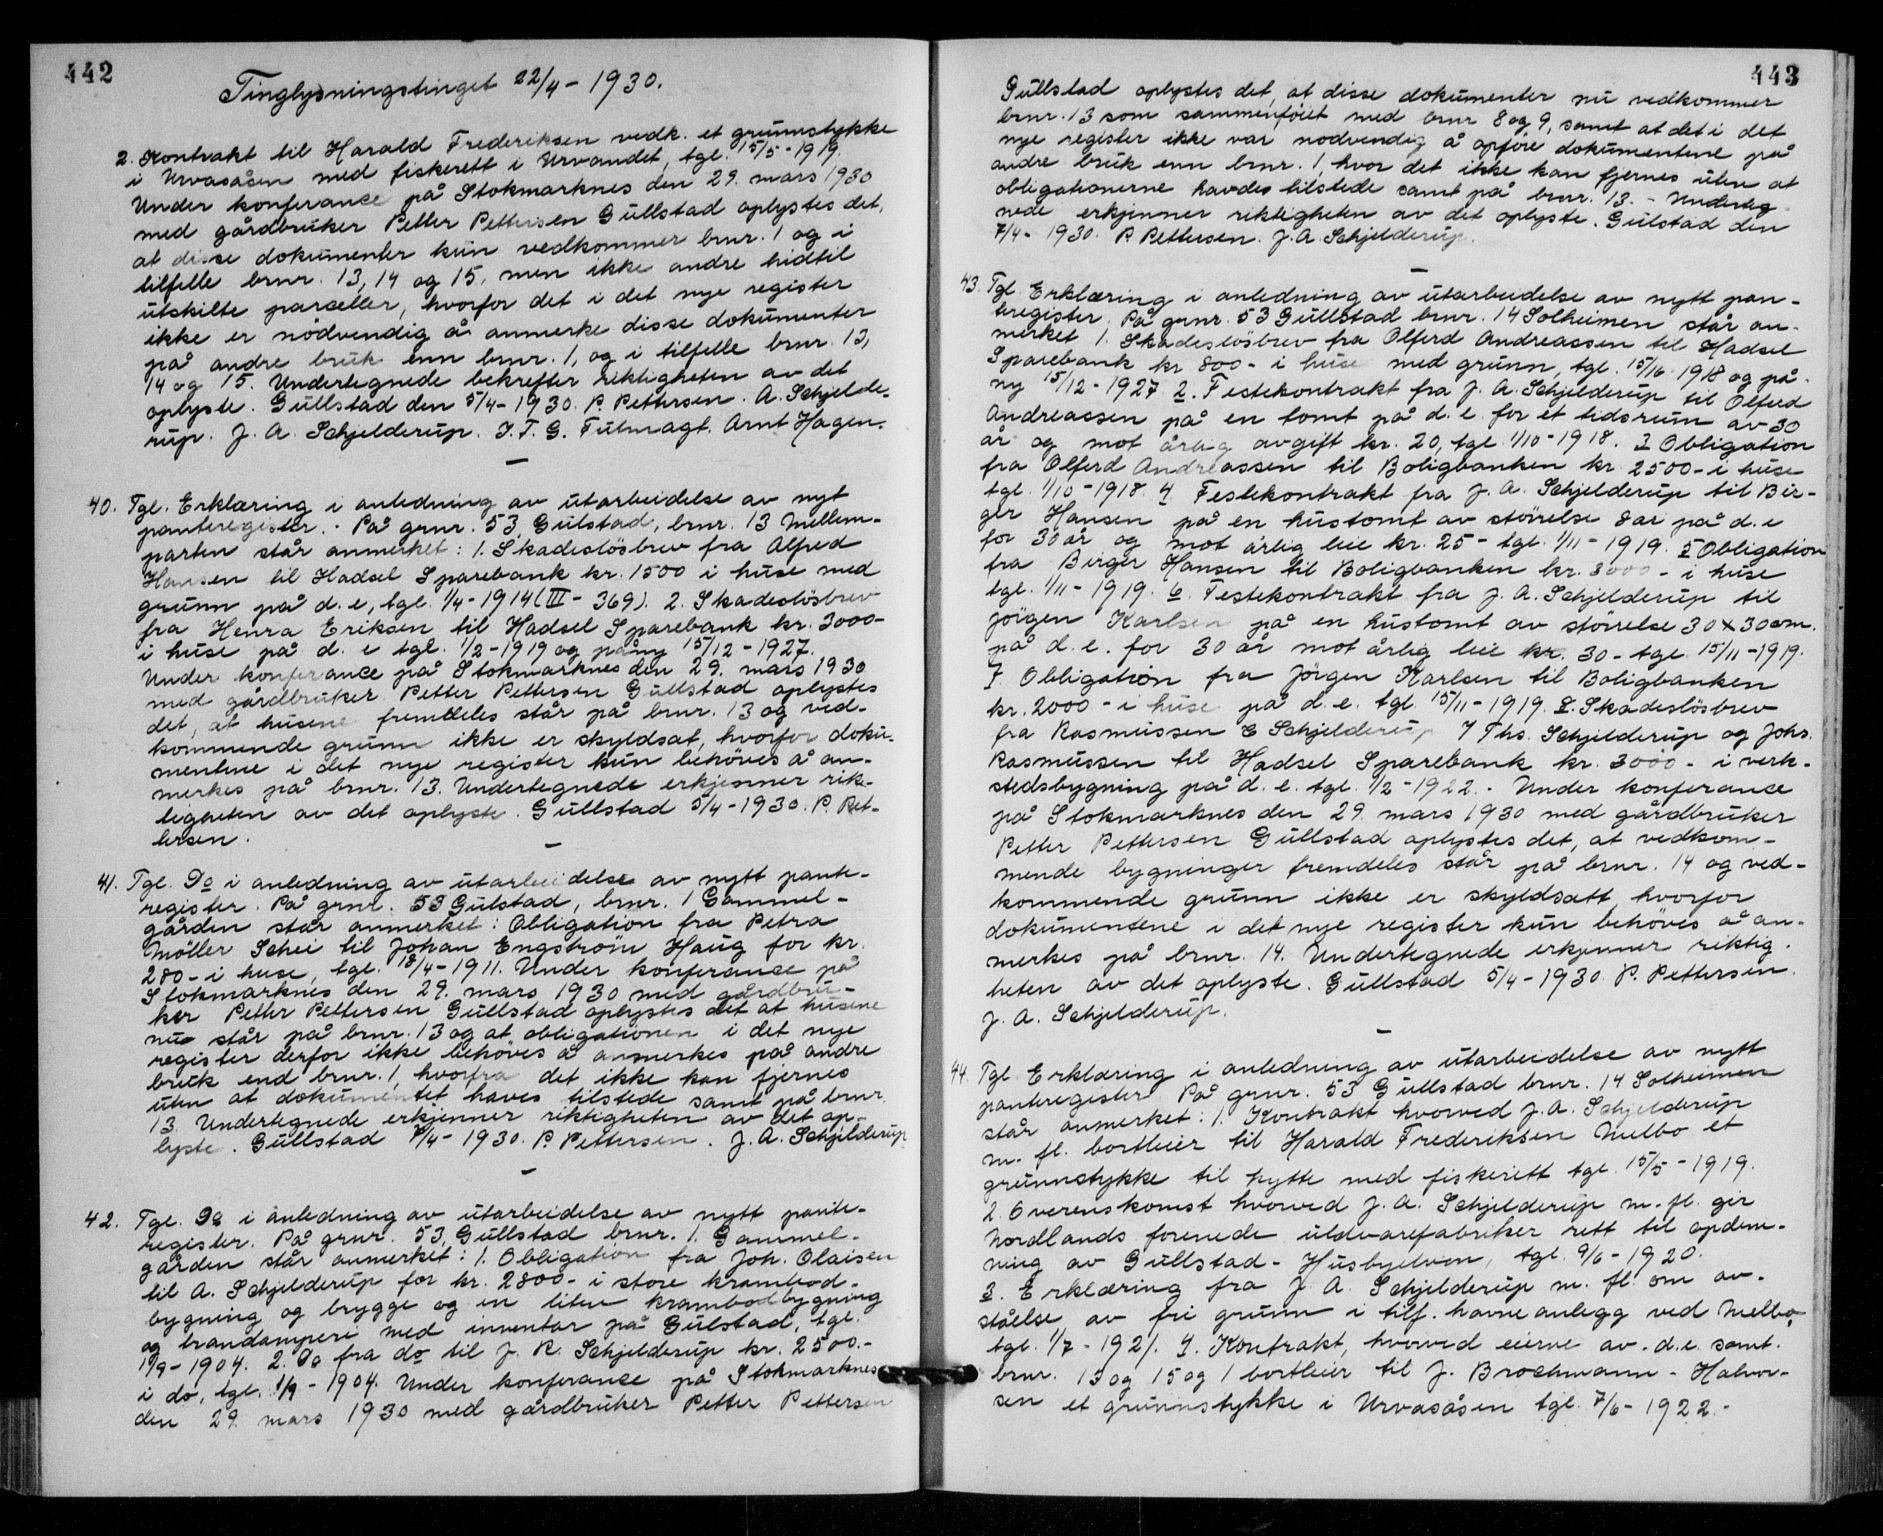 442
Tinglysningstinget 22/4 - 1930.
2. Kontrakt til Harald Frederiksen vedk. et grunnstykke
i Urvasåsen med fiskerett i Urvandet, tgl. 15/5 - 1919.
Under konferance på Stokmarknes den 29. mars 1930
med gårdbruker Petter Pettersen Gullstad oplystes det,
at disse dokumenter kun vedkommer brnr. 1 og i
tilfelle brnr. 13, 14 og 15, men ikke andre hidtil
utskilte parceller, hvorfor det i det nye register
ikke er nödvendig å anmerke disse dokumenter
på andre bruk enn brnr. 1, og i tilfelle brnr. 13,
14 og 15. Undertegnede bekrefter riktigheten av det
oplyste. Gullstad den 5/4 - 1930. P. Pettersen. A. Schjelde-
rup. J. A. Schjelderup. I. T. G. Fulmagt. Arnt Hagen.
40. Tgl. Erklæring i anledning av utarbeidelse av nyt
panteregister. På grnr. 53 Gulstad, brnr. 13 Mellem-
parten står anmerket: 1. Skadeslösbrev fra Alfred
Hansen til Hadsel Sparebank kr. 1500 i huse med
grunn på d. e, tgl. 1/4 - 1914 (III - 369). 2. Skadeslösbrev
fra Henra Eriksen til Hadsel Sparebank kr. 3000-
i huse på d. e tgl. 1/2 - 1919 og påny 15/12 - 1927.
Under konferance på Stokmarknes den 29. mars 1930
med gårdbruker Petter Pettersen Gullstad oplystes
det, at husene fremdeles står på brnr. 13 og ved-
kommende grunn ikke er skyldsat, hvorfor doku-
mentene i det nye register kun behöves å an-
merkes på brnr. 13. Undertegnede erkjenner rik-
tigheten av det oplyste. Gullstad 5/4 - 1930. P. Pet-
tersen.
41. Tgl. Do i anledning av utarbeidelse av nytt pante-
register. På grnr. 53 Gulstad, brnr. 1 Gammel-
gården står anmerket: Obligation fra Petra
Möller Schei til Johan Engström Haug for kr.
280 - i huse, tgl. 18/4 - 1911. Under konferance på
Stokmarknes den 29. mars 1930 med gårdbru-
ker Petter Pettersen Gullstad oplystes det at husene
nu står på brnr. 13 og at obligationen i det nye
register derfor ikke behöves å anmerkes på andre
bruk end brnr. 1, hvorfra det ikke kan fjernes
uten at dokumentet haves tilstede samt på brnr.
13. Undertegnede erkjenner riktigheten av det op-
lyste. Gullstad 5/4 - 1930. P. Pettersen. J. A. Schjelderup
42. Tgl. Do i anledning av utarbeidelse av nytt pante-
register. På grnr. 53, Gullstad brnr. 1. Gammel-
gården står anmerket: 1. Obligation fra Joh. Olaisen
til A. Schjelderup for kr. 2800 - i store krambod-
bygning og brygge og en liten krambodbygning
og trandamperi med inventar på Gulstad, tgl.
1/9 - 1904. 2. Do fra do til J. R. Schjelderup kr. 2500.-
i do, tgl. 1/9 - 1904. Under konferance på Stokmarknes
den 29. mars 1930 med gårdbruker Petter Pettersen
443
Gullstad oplystes det, at disse dokumenter nu vedkommer
brnr. 13 som sammenföiet med brnr 8 og 9, samt at det i det
nye register ikke var nödvendig å opföre dokumentene på
andre bruk enn brnr. 1, hvor det ikke kan fjernes uten at
obligationerne havdes tilstede samt på brnr. 13. - Underteg-
nede erkjenner riktigheten av det oplyste. Gulstad den
7/4 - 1930. P. Pettersen. J. A. Schjelderup.
43. Tgl. Erklæring i anledning av utarbeidelse av nytt pan-
teregister. På grnr. 53 Gullstad brnr. 14 Solheimen står an-
merket 1. Skadeslösbrev fra Olferd Andreassen til Hadsel
Sparebank kr 800 - i huse med grunn, tgl. 15/10 1918 og på-
ny 15/12 - 1927. 2. Festekontrakt fra J. A. Schjelderup til Olferd
Andreassen på en tomt på d. e. for et tidsrum av 30
år og mot årlig avgift kr. 20, tgl. 1/10 - 1918. 3 Obligation
fra Olferd Andreassen til Boligbanken kr 2500 - i huse
tgl. 1/10 - 1918. 4. Festekontrakt fra J. A. Schjelderup til Bir-
ger Hansen på en hustomt av störrelse 8 ar på d. e
for 30 år og mot årlig leie kr. 25 - tgl. 1/11 - 1919. 5 Obligation
fra Birger Hansen til Boligbanken kr. 3000 - i huse
tgl. 1/11 - 1919. 6. Festekontrakt fra J. A. Schjelderup til
Jörgen Karlsen på en hustomt av störrelse 30 x 30 m.
på d. e. for 30 år mot årlig leie kr. 30 - tgl. 15/11 - 1919.
7. Obligation fra Jörgen Karlsen til Boligbanken
kr. 2000 - i huse på d. e. tgl. 15/11 - 1919. 8. Skadeslösbrev
fra Rasmussen & Schjelderup / Ths. Schjelderup og Johs.
Rasmussen til Hadsel Sparebank kr. 3000 - i verk-
stedsbygning på d. e. tgl. 1/2 - 1922. - Under konferance
på Stokmarknes den 29. mars 1930 med gårdbruker
Petter Pettersen Gullstad oplystes det, at vedkom-
mende bygninger fremdeles står på brnr. 14 og ved-
kommende grunn ikke er skyldsatt, hvorfor
dokumentene i det nye register kun behöves å an-
merkes på brnr. 14. Undertegnede erkjenner riktig-
heten av det oplyste. Gullstad 5/4 - 1930. P. Pettersen.
J. A. Schjelderup.
44. Tgl. Erklæring i anledning av utarbeidelse av nytt
panteregister. På grnr. 53 Gullstad brnr. 14 Solheimen
står anmerket: 1. Kontrakt hvorved J. A. Schjelderup
m. fl. bortleier til Harald Frederiksen Melbo et
grunnstykke til hytte med fiskerett tgl. 15/5 - 1919.
2. Overenskomst hvorved J. A. Schjelderup m. fl. gir
Nordlands forenede uldvarefabriker rett til opdem-
ning av Gullstad - Husbyelven, tgl. 9/6 - 1920.
3. Erklæring fra J. A. Schjelderup m. fl om av-
ståelse av fri grunn i tilf. havneanlegg ved Melbo,
tgl. 1/7 - 1921. 4. Kontrakt, hvorved eierne av. d. e. samt.
brnr. 13 og 15 og 1 bortleier til J. Brochmann - Halvor-
sen et grunnstykke i Urvasåsen tgl. 7/6 - 1922. -